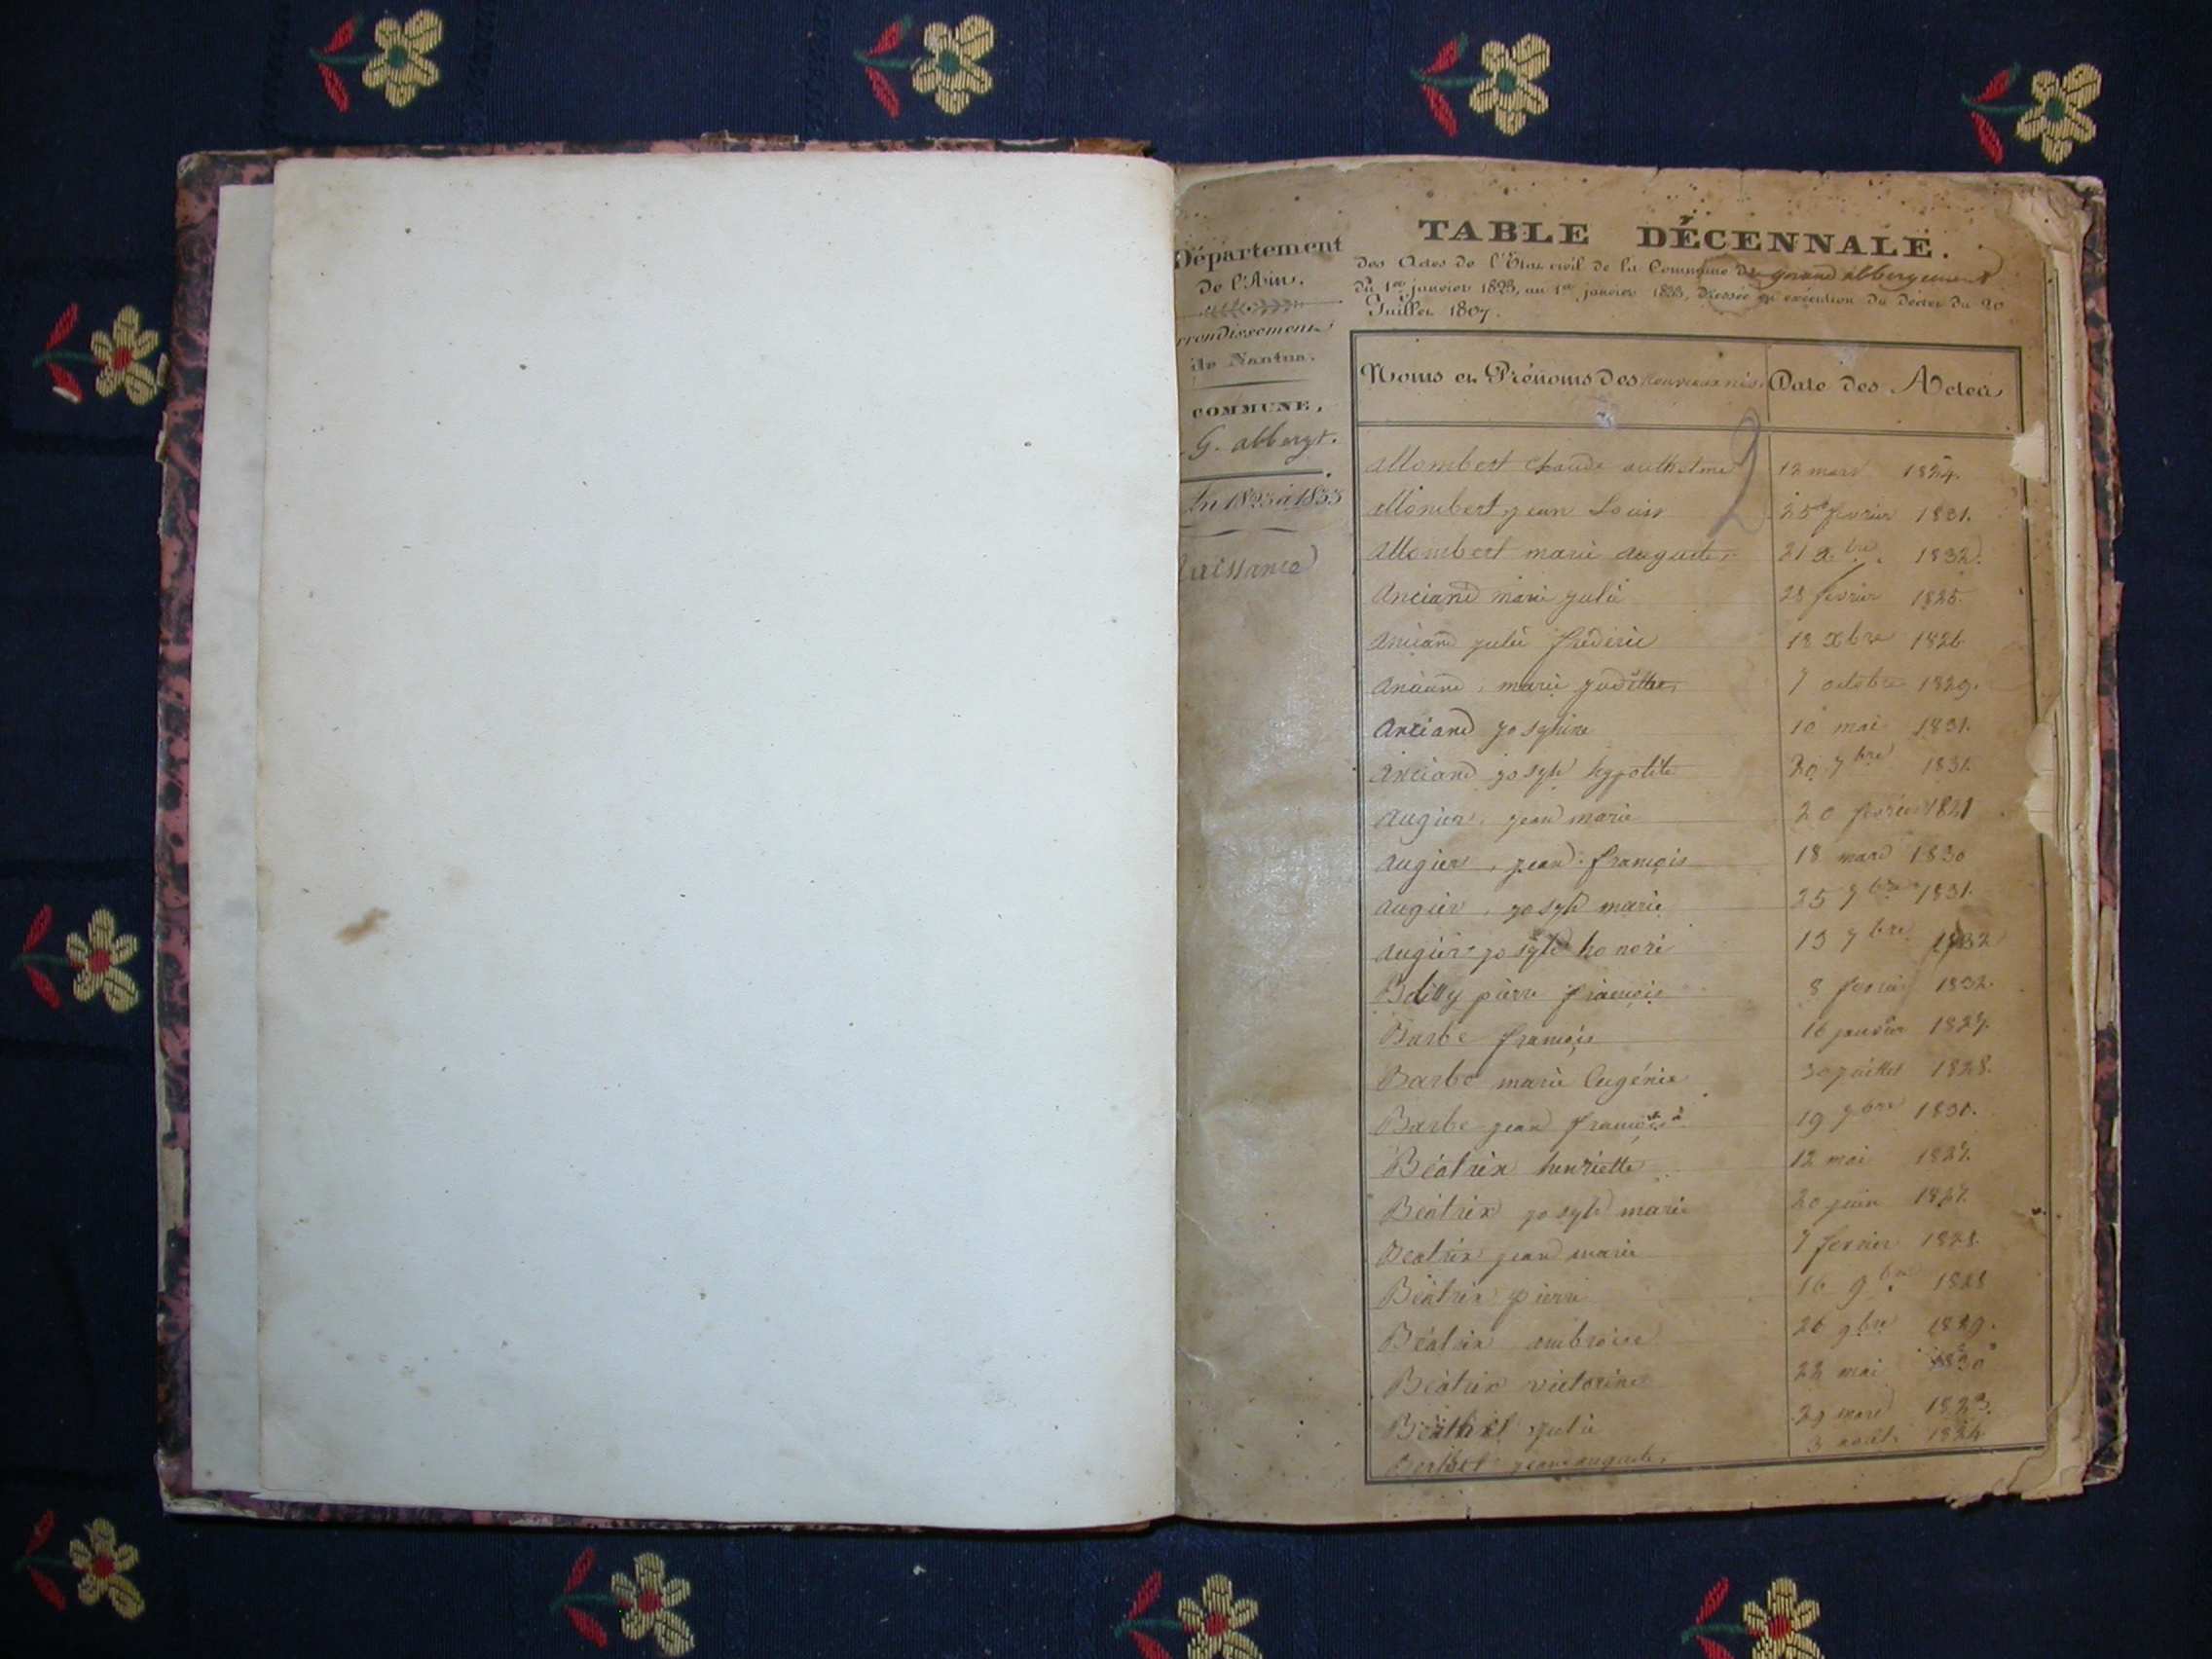 Département
de l'Ain.
rrondissement
de Nantua.
COMMUNE,
G. abbergt.
1823 à 1833
aissance
TABLE DÉCENNALE.
des Actes de l'État civil de la Commune du grand abbergement
du 1er janvier 1823, au 1er janvier 1833, dressée en exécution du décret du 20
Juillet 1807.
Noms et Prénoms des nouveaux nés. Date des Actes
2
allombert Claude anthelme 12 mars 1824.
allombert jean Louis 25 fevrier 1831.
allombert marie auguste 21 xbre. 1832.
anciand marie julie 28 fevrier 1825.
anciand julie frédéric 18 xbre 1826
anciand, marie judette 7 octobre 1829.
anciand josephine 10 mai 1831.
anciand joseph hypolite 30 7bre 1831.
augier, jean marie 20 fevrier
augier, jean françois 18 mars 1830
augier, joseph marie 25 7bre 1831.
augier joseph honoré 13 7bre 1832
pierre françois 8 fevrier 1832.
Barbe françois 16 janvier 1827.
Barbe marie Eugénie 30 juillet 1828.
Barbe jean françois 19 9bre
Béatrix henriette 12 mai 1827.
Béatrix joseph marie 20 juin 1827.
Beatrix jean marie 7 fevrier 1828.
Béatrix pierre 16 9bre 1828
Béatrix ambroise 26 9bre 1829.
Béatrix victorine 22 mai 1830
julie 29 mars 1823.
jean auguste 3 août 1824